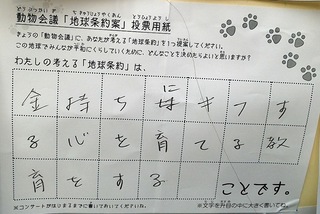 どうぶつかいぎ ちきゅうじょうやくあん とうひょうようし
動物会議「地球条約案」投票用紙
きょうの「動物会議」に、あなたが考える「地球条約」を1つ提案してください。
この地球でみんなが平和にくらしていくために、どんなことを決めたらよいと思いますか？
わたしの考える「地球条約」は、
金持ちにはキフす
る心を育てる教
育をする
ことです。
※コンサートがはじまるまでに書いておいてくださいね。
※文字を升目の中に大きく書いてね。